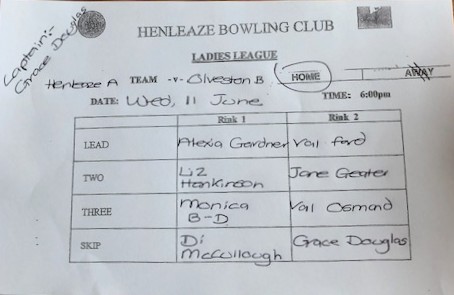 Captain:-
Grace Douglas
HENLEAZE BOWLING CLUB
LADIES LEAGUE
Henleaze A TEAM -v- Olveston B HOME AWAY
DATE: Wed, 11 June TIME: 6:00pm
Rink 1 Rink 2
LEAD Alexia Gardner Val Ford
TWO Liz Hankinson Jane Geater
THREE Monica B-D Val Osmond
SKIP Di McCullough Grace Douglas